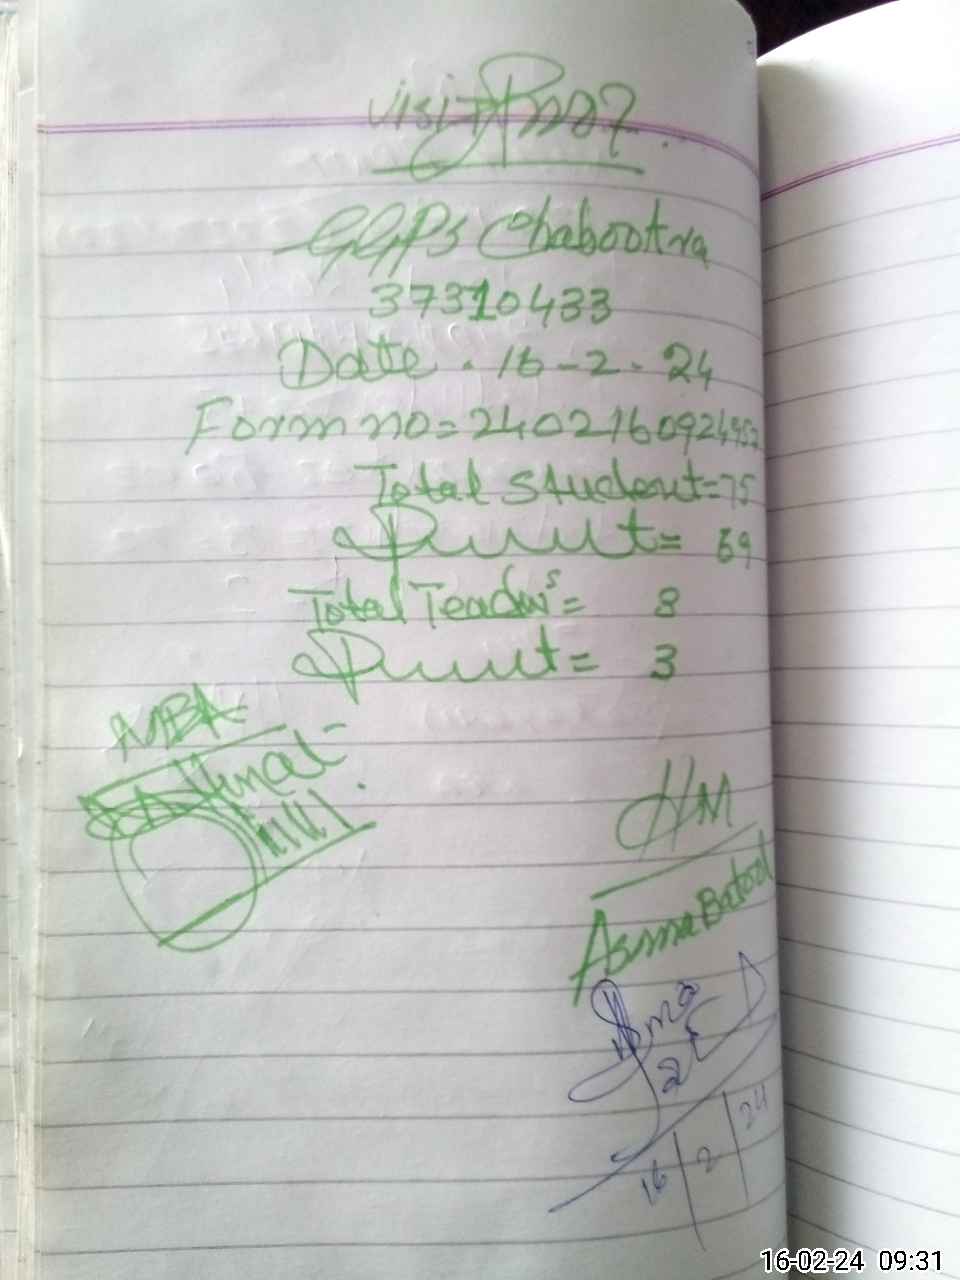 visit
GGPS Chabootra
37310433
Date . 16-2-24
Form no=240216092495
Total student=75
Present= 69
Total Teachers= 8
Present= 3
HM
Asma Batool
16 2 24
16-02-24 09:31